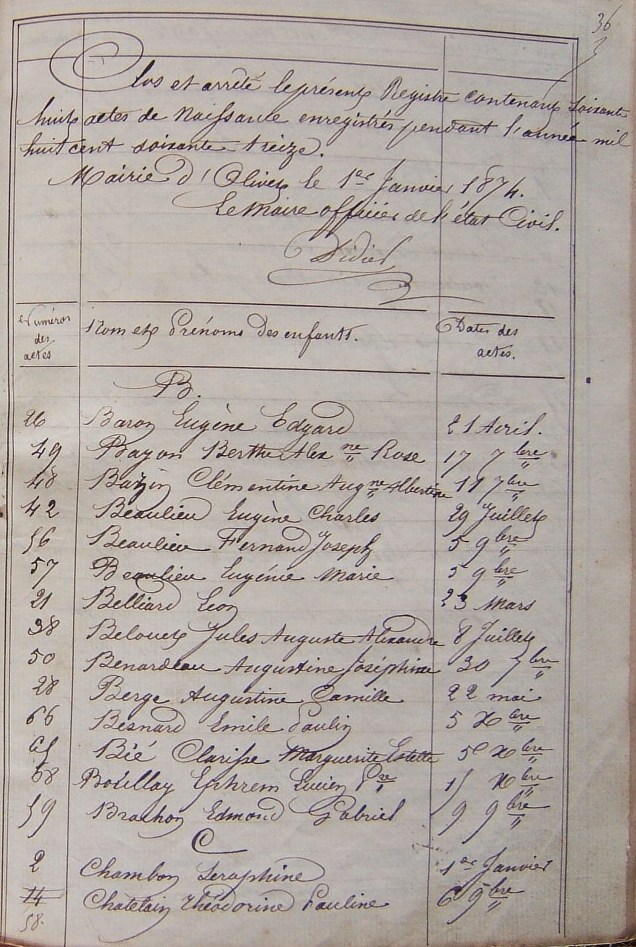 36
Clos et arrêté le présent Registre contenant soixante
huit actes de Naissance enregistrés pendant l'année mil
huit cent soixante-treize.
Mairie d'Olivet le 1er Janvier 1874.
Le Maire officier de l'état Civil.
Numéros des actes
Nom et Prénoms des enfants.
Dates des actes.
B.
26 Baron Eugène Edgard 21 Avril.
49 Bayon Berthe Alex ne Rose 17 7bre
48 Bazin Clémentine Aug ne Albertine 11 7bre
42 Beaulieu Eugène Charles 29 Juillet
56 Beaulieu Fernand Joseph 5 9bre
57 Beaulieu Eugénie Marie 5 9bre
21 Belliard Leon 23 Mars
38 Belouet Jules Auguste Alexandre 8 Juillet
50 Benardeau Augustine Joséphine 30 7bre
28 Berge Augustine Camille 22 mai
66 Besnard Emile Paulin 5 Xbre
Bié Clarisse Marguerite Estelle Xbre
68 Boillay Ephrem Lucien Xbre
59 Brachon Edmond Gabriel 9 9bre
C
2 Chambon Seraphine 1er Janvier
14 Chatelain Théodorine Pauline 6 9bre
58.